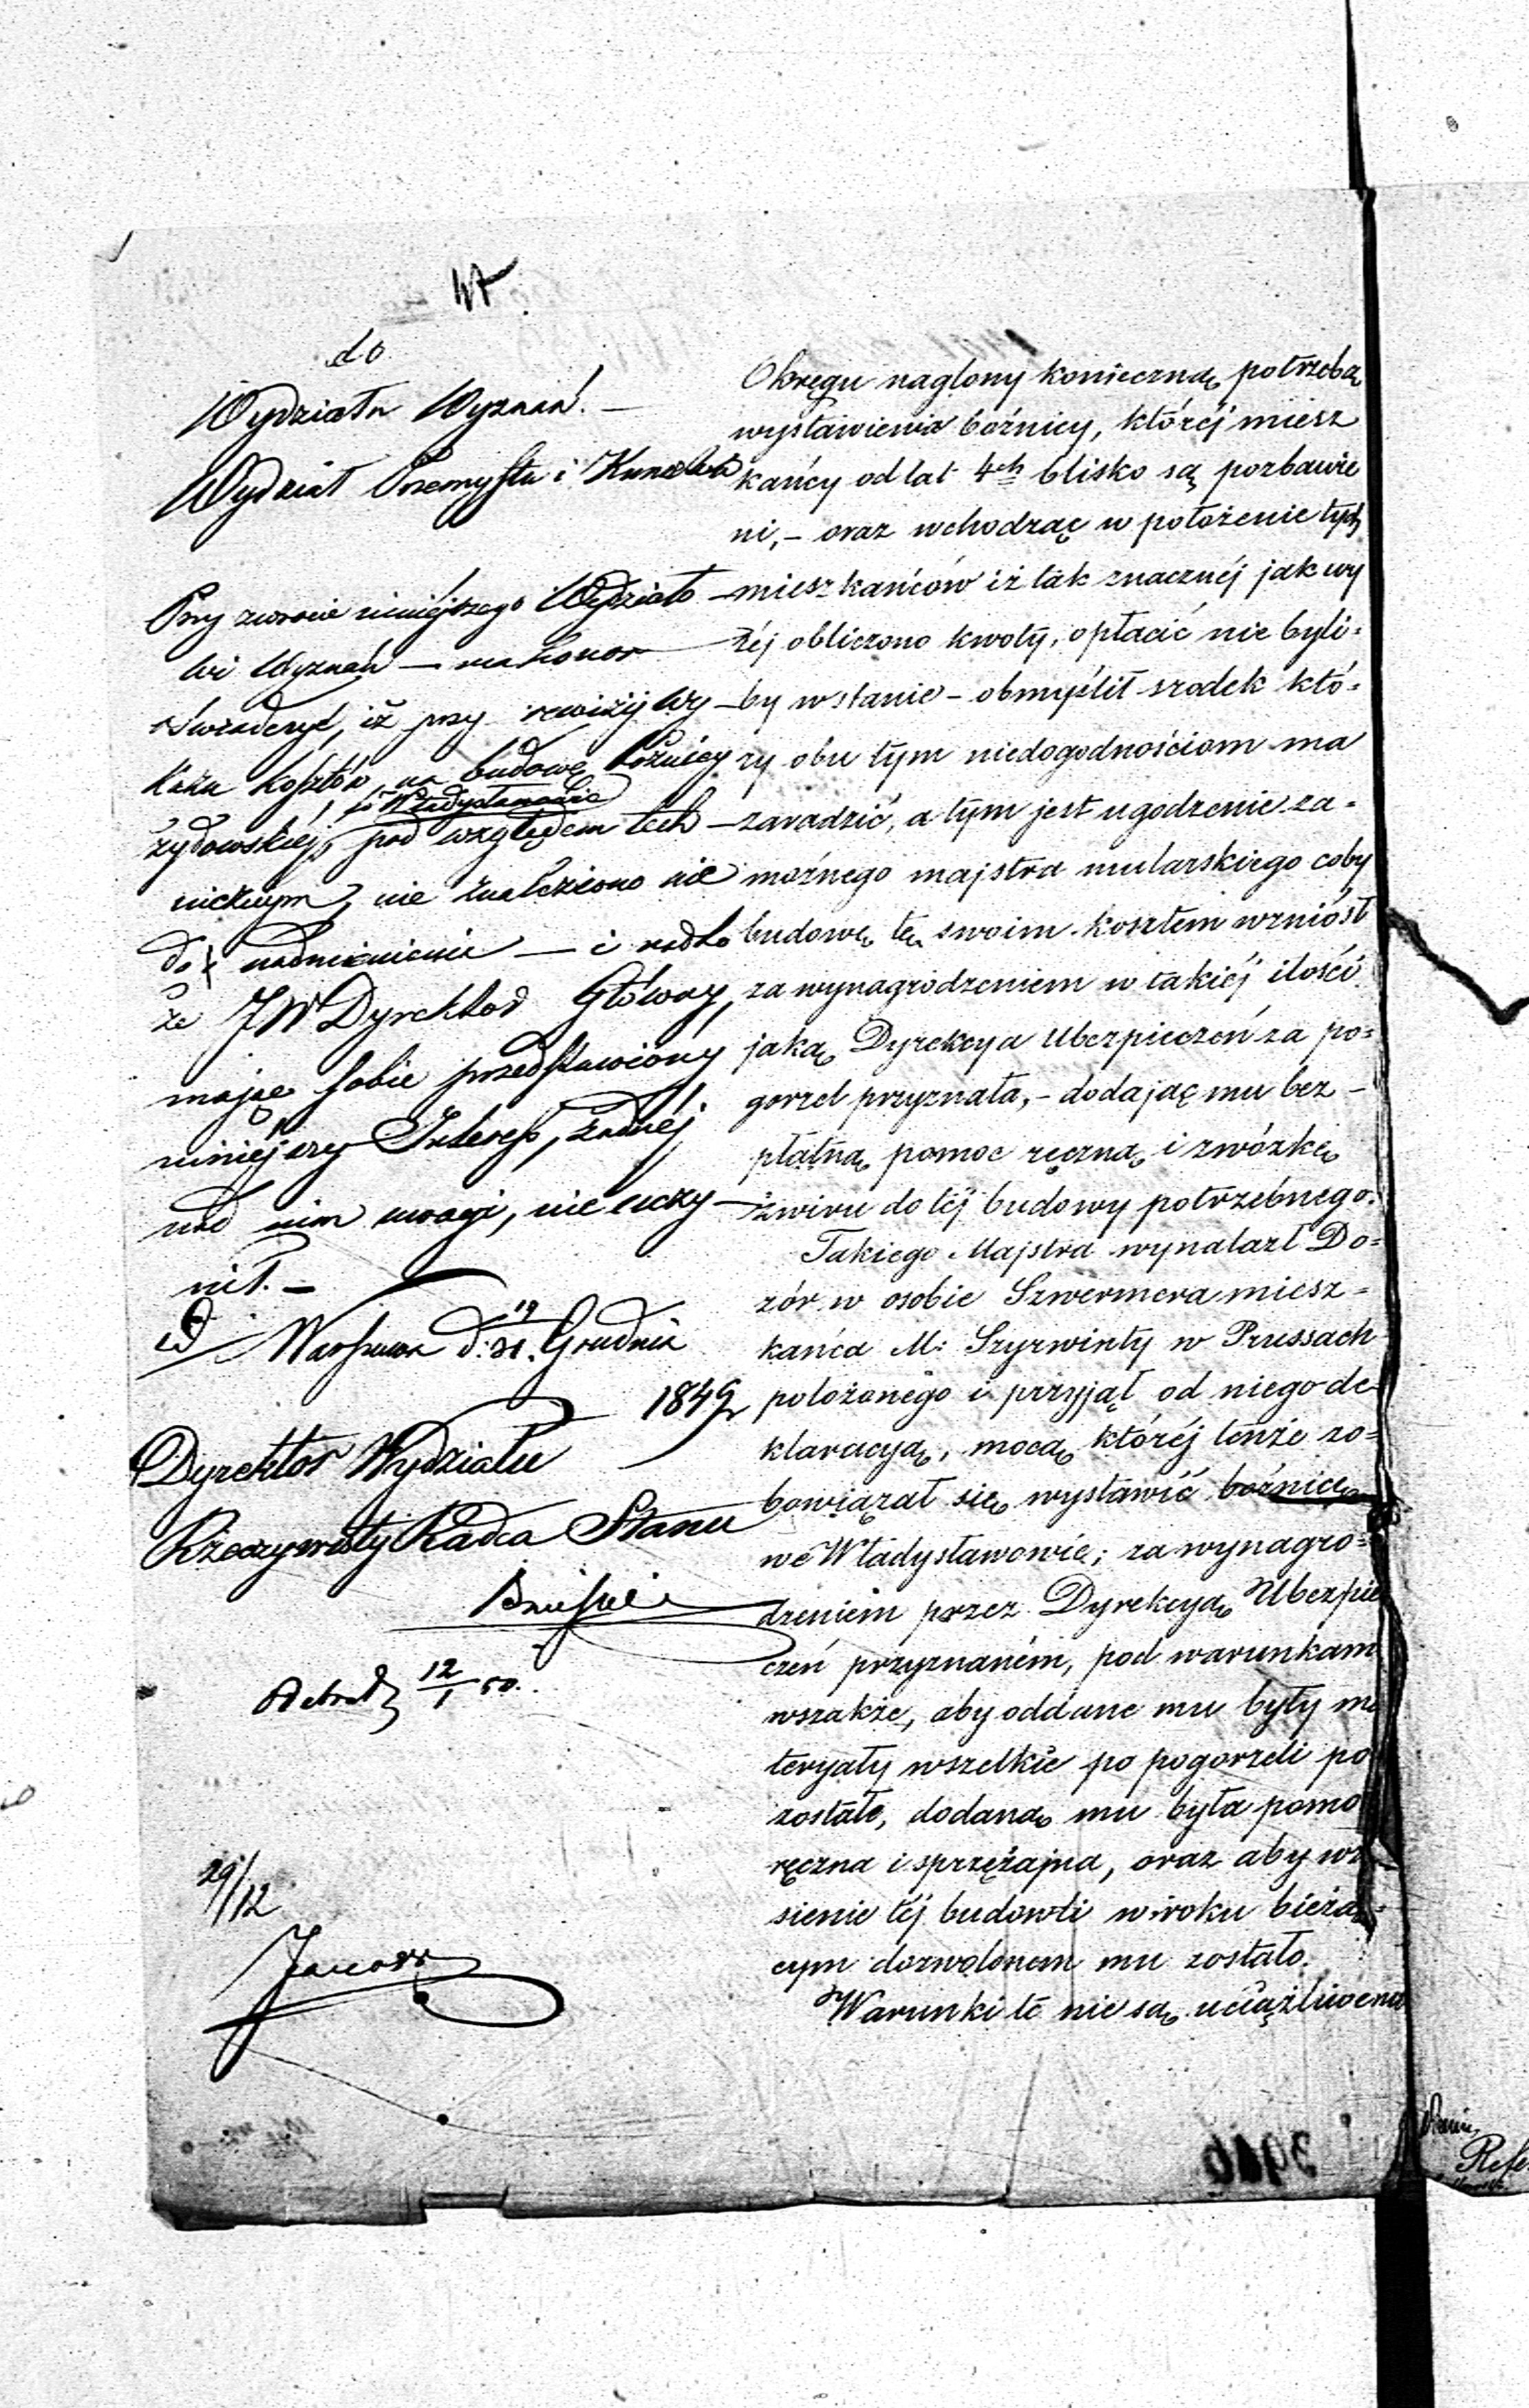 do
Wydziału Wyznań. —
Wydział Przemysłu i Kunsztów
Przy zwrocie niniejszego Wydziało-
wi Wyznań — ma honor
oświadczyć, iż przy rewizyi wy-
kazu kosztów na budowę bóżnicy
w Władysławowie
żydowskiej, pod względem tech-
nicznym, nie znaleziono nic
do nadmienienia — i nadto
że JW Dyrektor Główny,
mając sobie przedstawiony
niniejszy Interess, żadnej
nad nim uwagi, nie uczy-
nił. —
Warszawa d. 19/31. Grudnia
1849
Dyrektor Wydziału
Rzeczywisty Radca Stanu
12/1 50.
29/12
Okręgu naglony konieczną potrzebą
wystawienia bóźnicy, któréj miesz
kańcy od lat 4ch blisko są pozbawie
ni, – oraz wchodząc w położenie tych
mieszkańców iż tak znacznéj jak wy
żéj obliczono kwoty, opłacić nie byli=
by wstanie – obmyślił srodek któ=
ry obu tym niedogodnościom ma
zaradzić, a tym jest ugodzenie za=
możnego majstra mularskiego coby
budowę tę swoim kosztem wzniósł
za wynagrodzeniem w takiéj ilości
jaką Dyrekcya Ubezpieczeń za po=
gorzel przyznała, – dodając mu bez–
płatną pomoc ręczną i zwózkę
żwiru do téj budowy potrzebnego.
Takiego Majstra wynalazł Do=
zór w osobie Szwermera miesz=
kańca M: Szyrwinty w Prussach
położonego i przyjął od niego de-
klaracyą, mocą któréj tenże zo=
bowiązał się wystawić bóźnicę
we Władysławowie; za wynagro=
dzeniem przez Dyrekcyą Ubezpie
czeń przyznaném, pod warunkam
wszakże, aby oddane mu były ma
teryały wszelkie po pogorzeli po
zostałe, dodaną mu była pomo
ręczna i sprzężajna, oraz aby wz
sienie téj budowli w roku bieżą=
cym dozwolonem mu zostało.
Warunki te nie są uciążliwemi